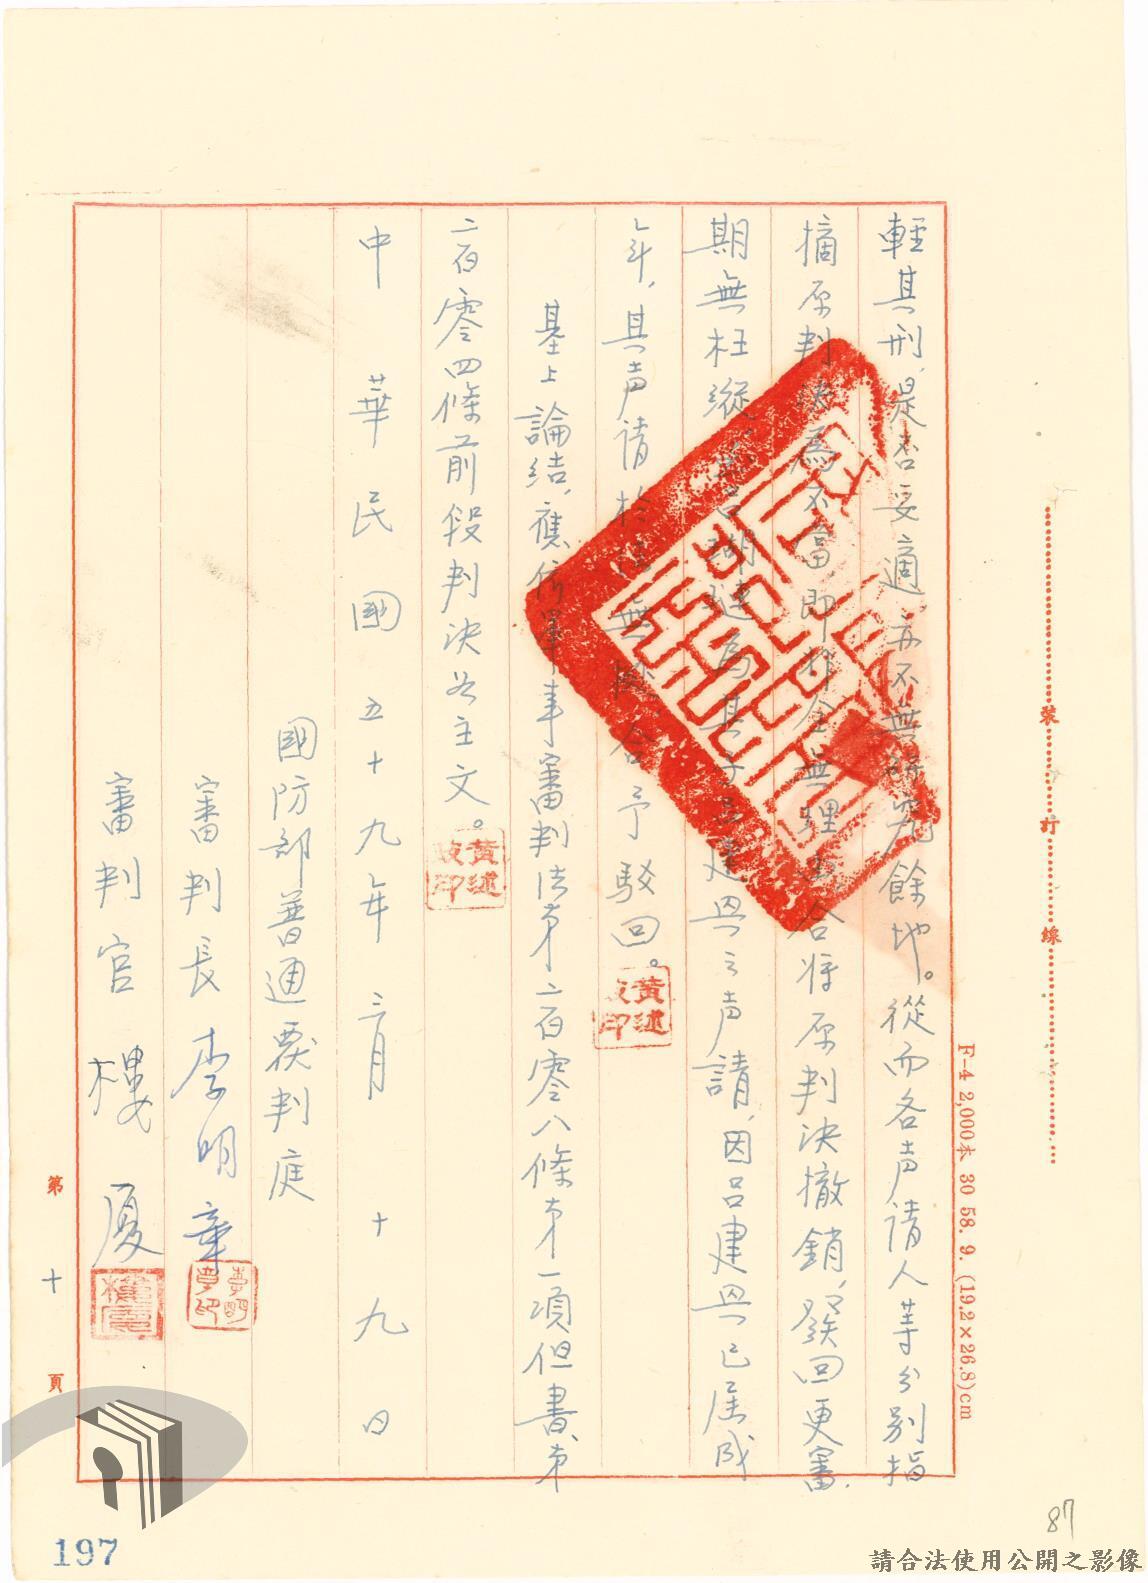 輕其刑，是否妥適亦不無研究餘地。從而各声請人等分別指
摘原判決為不當，即非全無理由，合將原判決撤銷，發回更審，
期無枉縱。至呂瑚璉為其子呂建興之声請，因呂建興已屆成
年，其声請於法無據，合予駁回。
基上論結，應依軍事審判法第二百零八條第一項但書、第
二百零四條前段判決如主文。
中華民國五十九年三月十九日
國防部普通覆判庭
審判長 李明章
審判官 樓厦
黃述攻印
黃述攻印
第十頁
裝訂線
F-4 2,000本 30 58. 9. (19.2×26.8)cm
197
87
請合法使用公開之影像